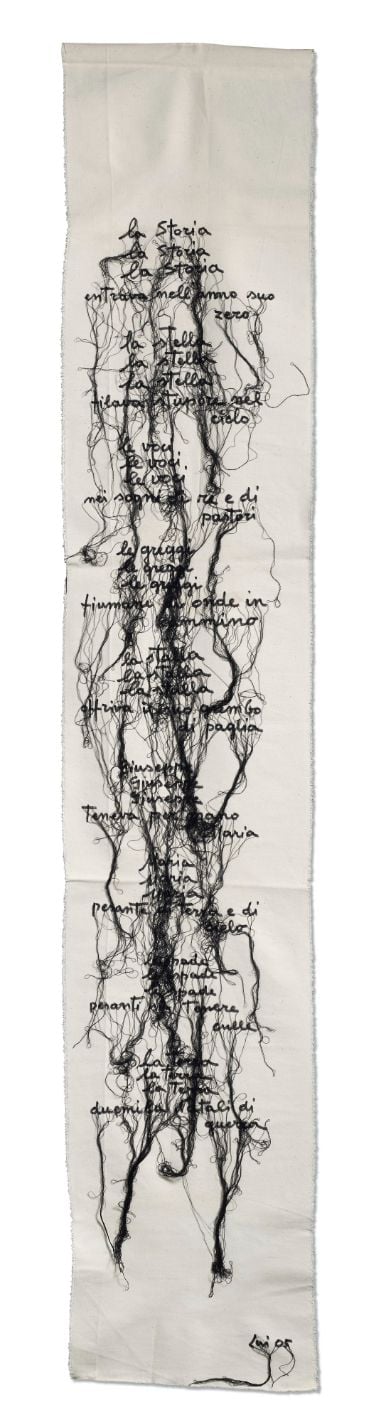 la Storia
la Storia
la Storia
entrava nell'anno suo
zero
la stella
la stella
la stella
filava stupore nel
cielo
le voci
le voci
le voci
nei sogni di re e di
pastori
le greggi
le greggi
le greggi
fiumane di onde in
cammino
la stalla
la stalla
la stalla
offriva il suo grembo
di paglia
Giuseppe
Giuseppe
Giuseppe
Teneva per mano
Maria
Maria
Maria
Maria
pesante di terra e di
cielo
le spade
le spade
le spade
pesanti su tenere
culle
la terra
la terra
la terra
duemila Natali di
guerra
05